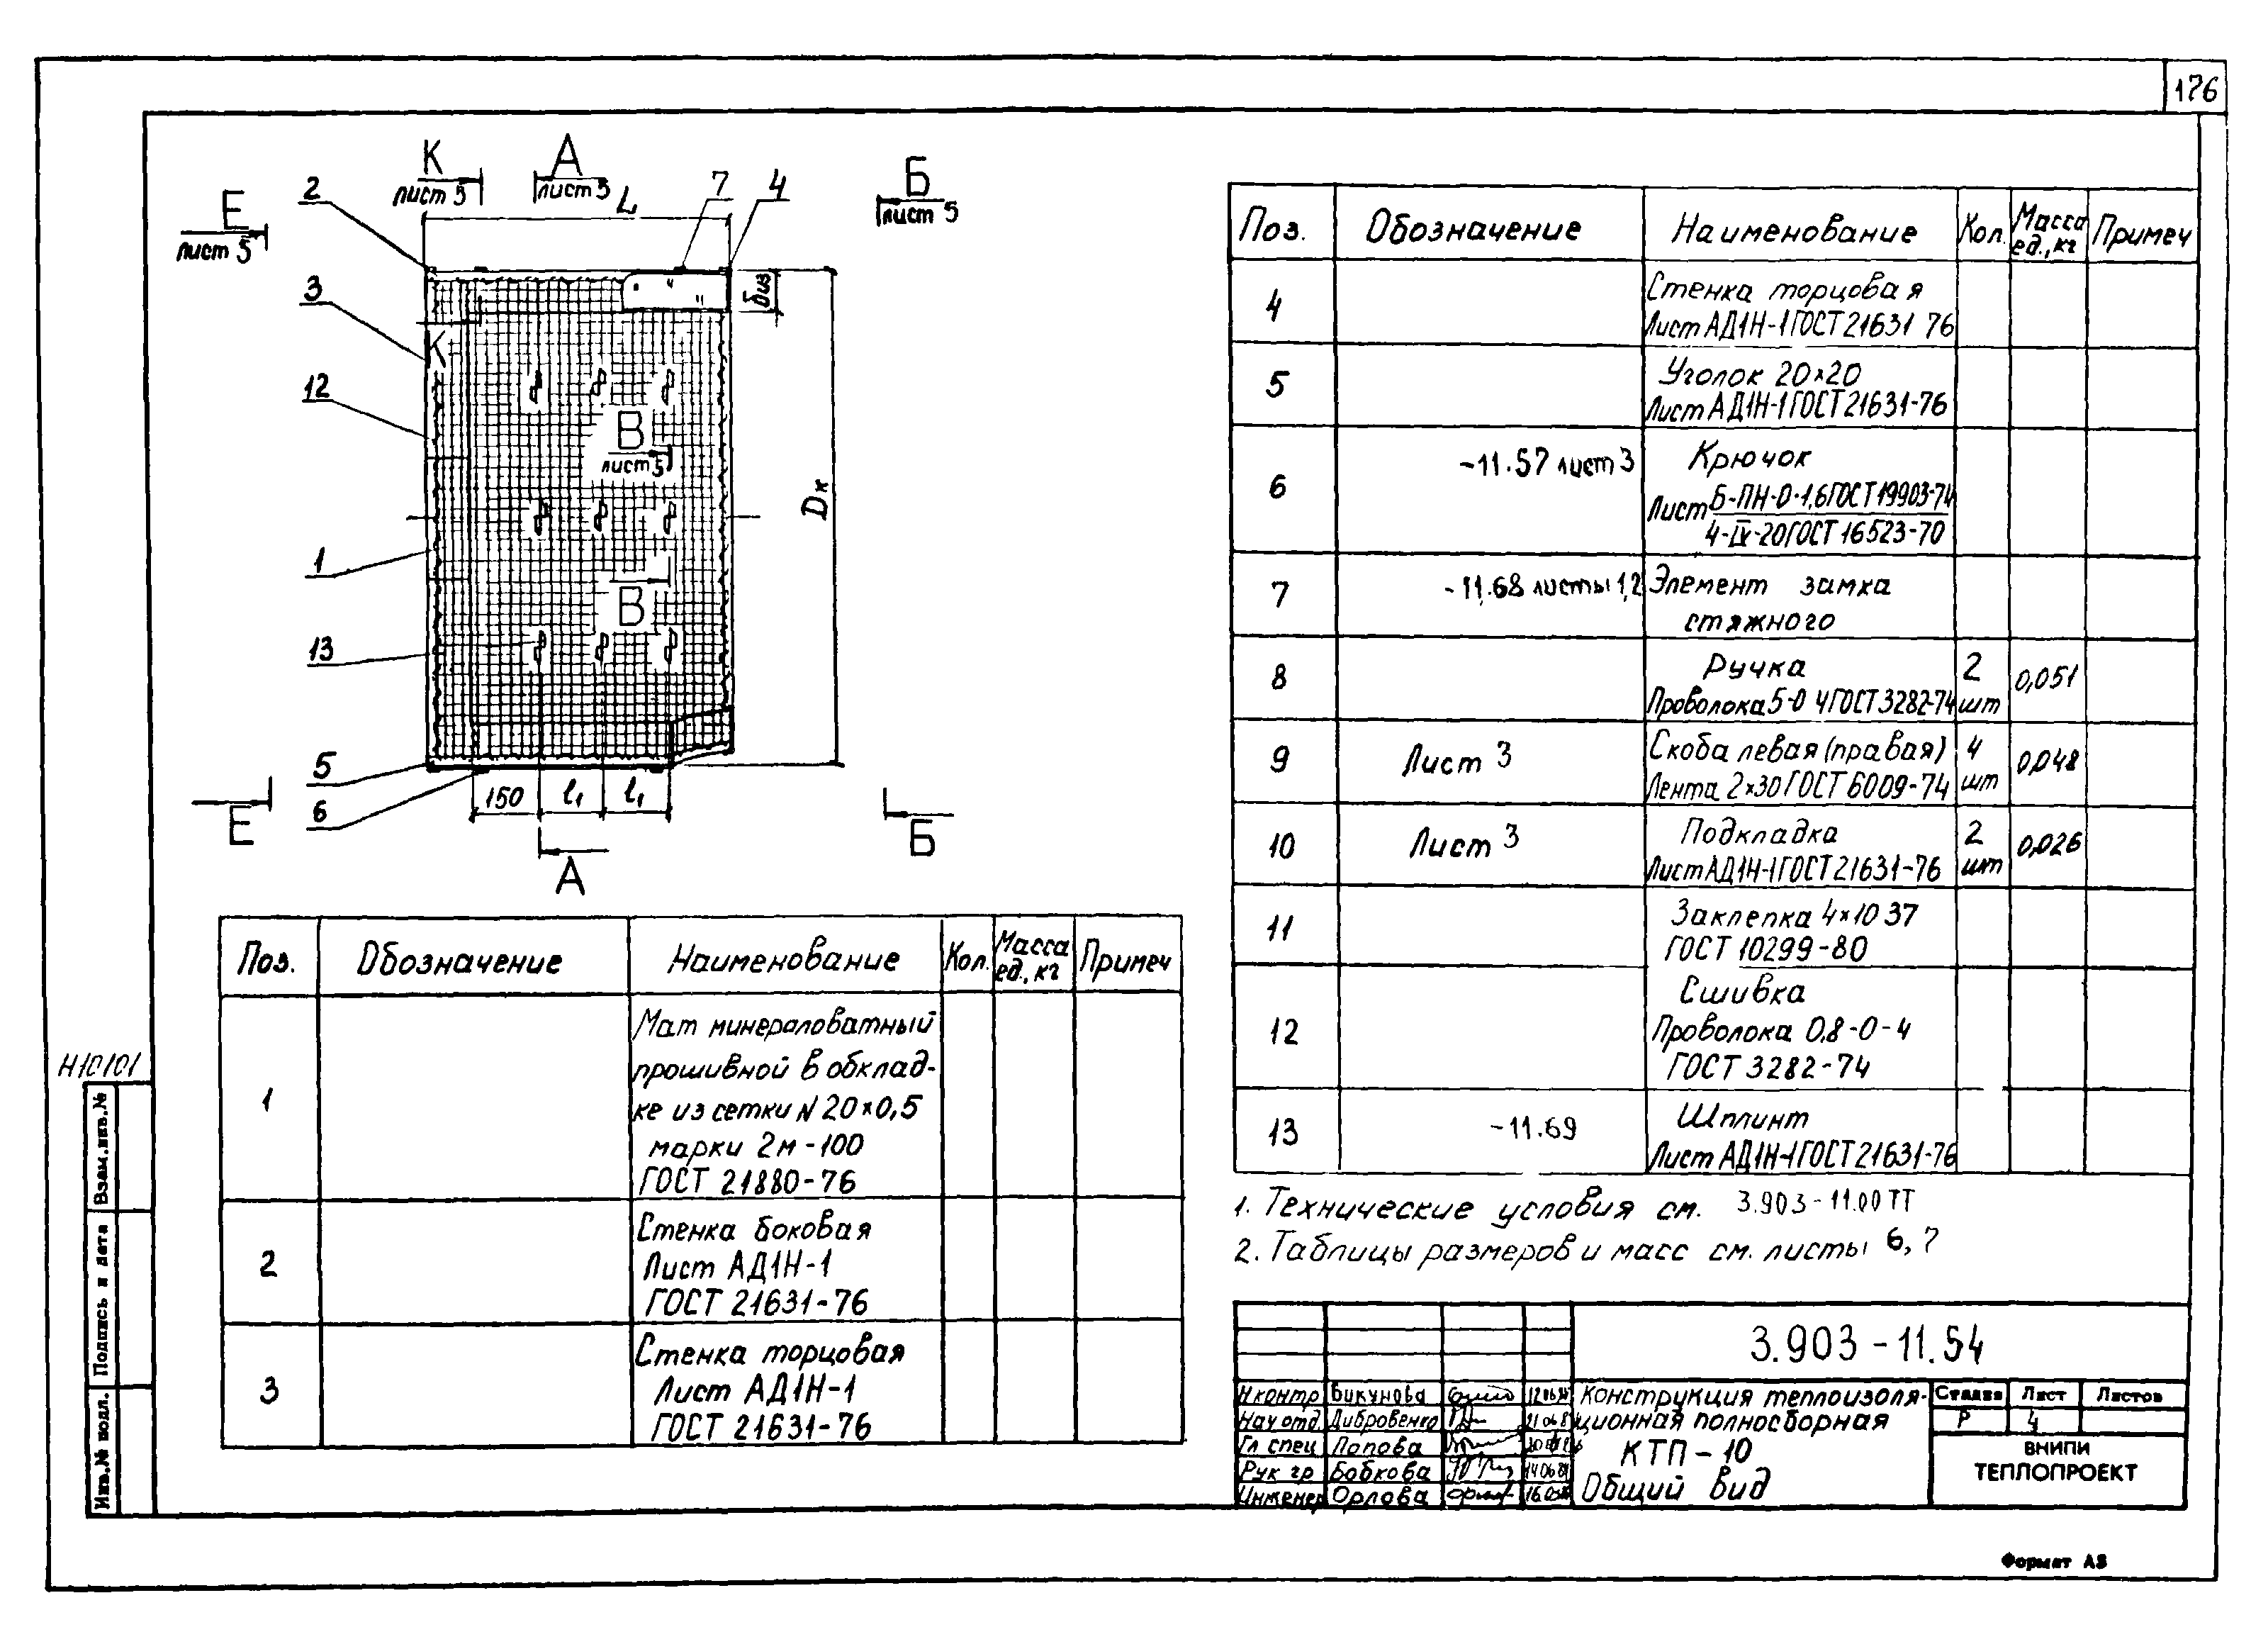 176
К
лист 5
А
лист 3
Б
лист 5
Е
лист 5
2
7
4
L
3
К
12
В
лист 5
Dк
1
В
13
5
6
150
l₁
l₁
Е
Б
А
Поз.
Обозначение
Наименование
Кол.
Масса ед., кг
Примеч
1
Мат минераловатный
прошивной в обклад-
ке из сетки N 20×0,5
марки 2м-100
ГОСТ 21880-76
2
Стенка боковая
Лист АД1Н-1
ГОСТ 21631-76
3
Стенка торцовая
Лист АД1Н-1
ГОСТ 21631-76
Поз.
Обозначение
Наименование
Кол.
Масса ед., кг
Примеч
4
Стенка торцовая
Лист АД1Н-1 ГОСТ 21631 76
5
Уголок 20×20
Лист АД1Н-1 ГОСТ 21631-76
6
-11.57 лист 3
Крючок
Лист Б-ПН-О-1,6 ГОСТ 19903-74
4-IV-20 ГОСТ 16523-70
7
-11.68 листы 1,2
Элемент замка
стяжного
8
Ручка
Проволока 5-0 4 ГОСТ 3282-74
2 шт
0,051
9
Лист 3
Скоба левая (правая)
Лента 2×30 ГОСТ 6009-74
4 шт
0,048
10
Лист 3
Подкладка
Лист АД1Н-1 ГОСТ 21631-76
2 шт
0,026
11
Заклепка 4×10 37
ГОСТ 10299-80
12
Сшивка
Проволока 0,8-0-4
ГОСТ 3282-74
13
-11.69
Шплинт
Лист АД1Н-1 ГОСТ 21631-76
1. Технические условия см. 3.903-11.00 ТТ
2. Таблицы размеров и масс см. листы 6, 7
3.903-11.54
Н контр Бикунова
Нач отд Дибровенко
Гл спец Попова
Рук гр Бобкова
Инженер Орлова
Конструкция теплоизоля-
ционная полносборная
КТП-10
Общий вид
Стадия Лист Листов
Р 4
ВНИПИ
ТЕПЛОПРОЕКТ
Формат А3
Н10101
Взам.инв.№
Подпись и дата
Инв.№ подл.